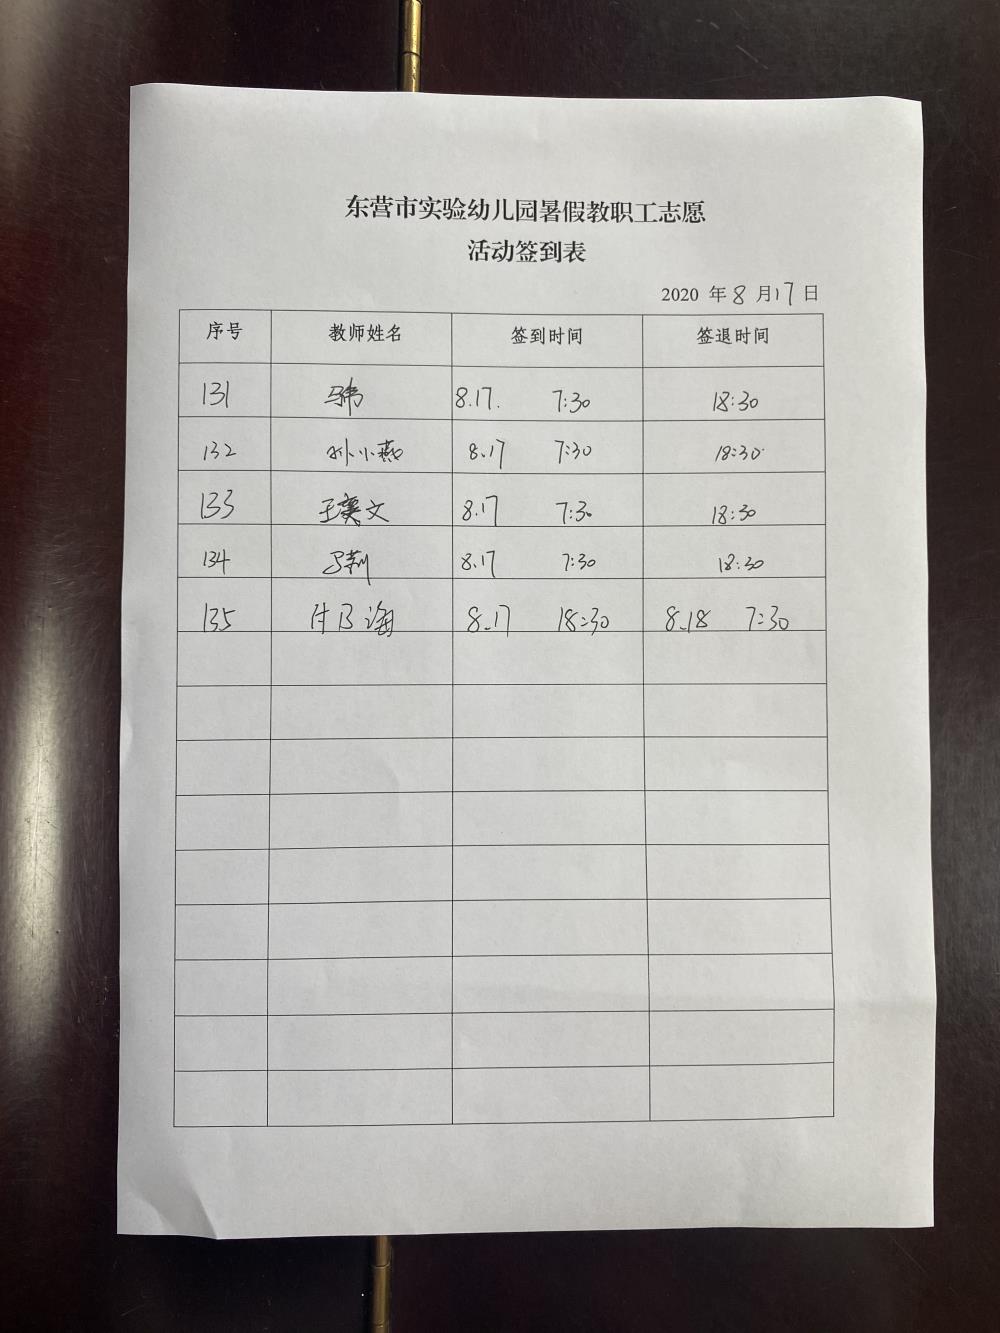 东营市实验幼儿园暑假教职工志愿
活动签到表
2020 年 8 月 17 日
序号 教师姓名 签到时间 签退时间
131 8.17. 7:30 18:30
132 孙小燕 8.17 7:30 18:30
133 王奕文 8.17 7:30 18:30
134 马莉 8.17 7:30 18:30
135 8.17 18:30 8.18 7:30